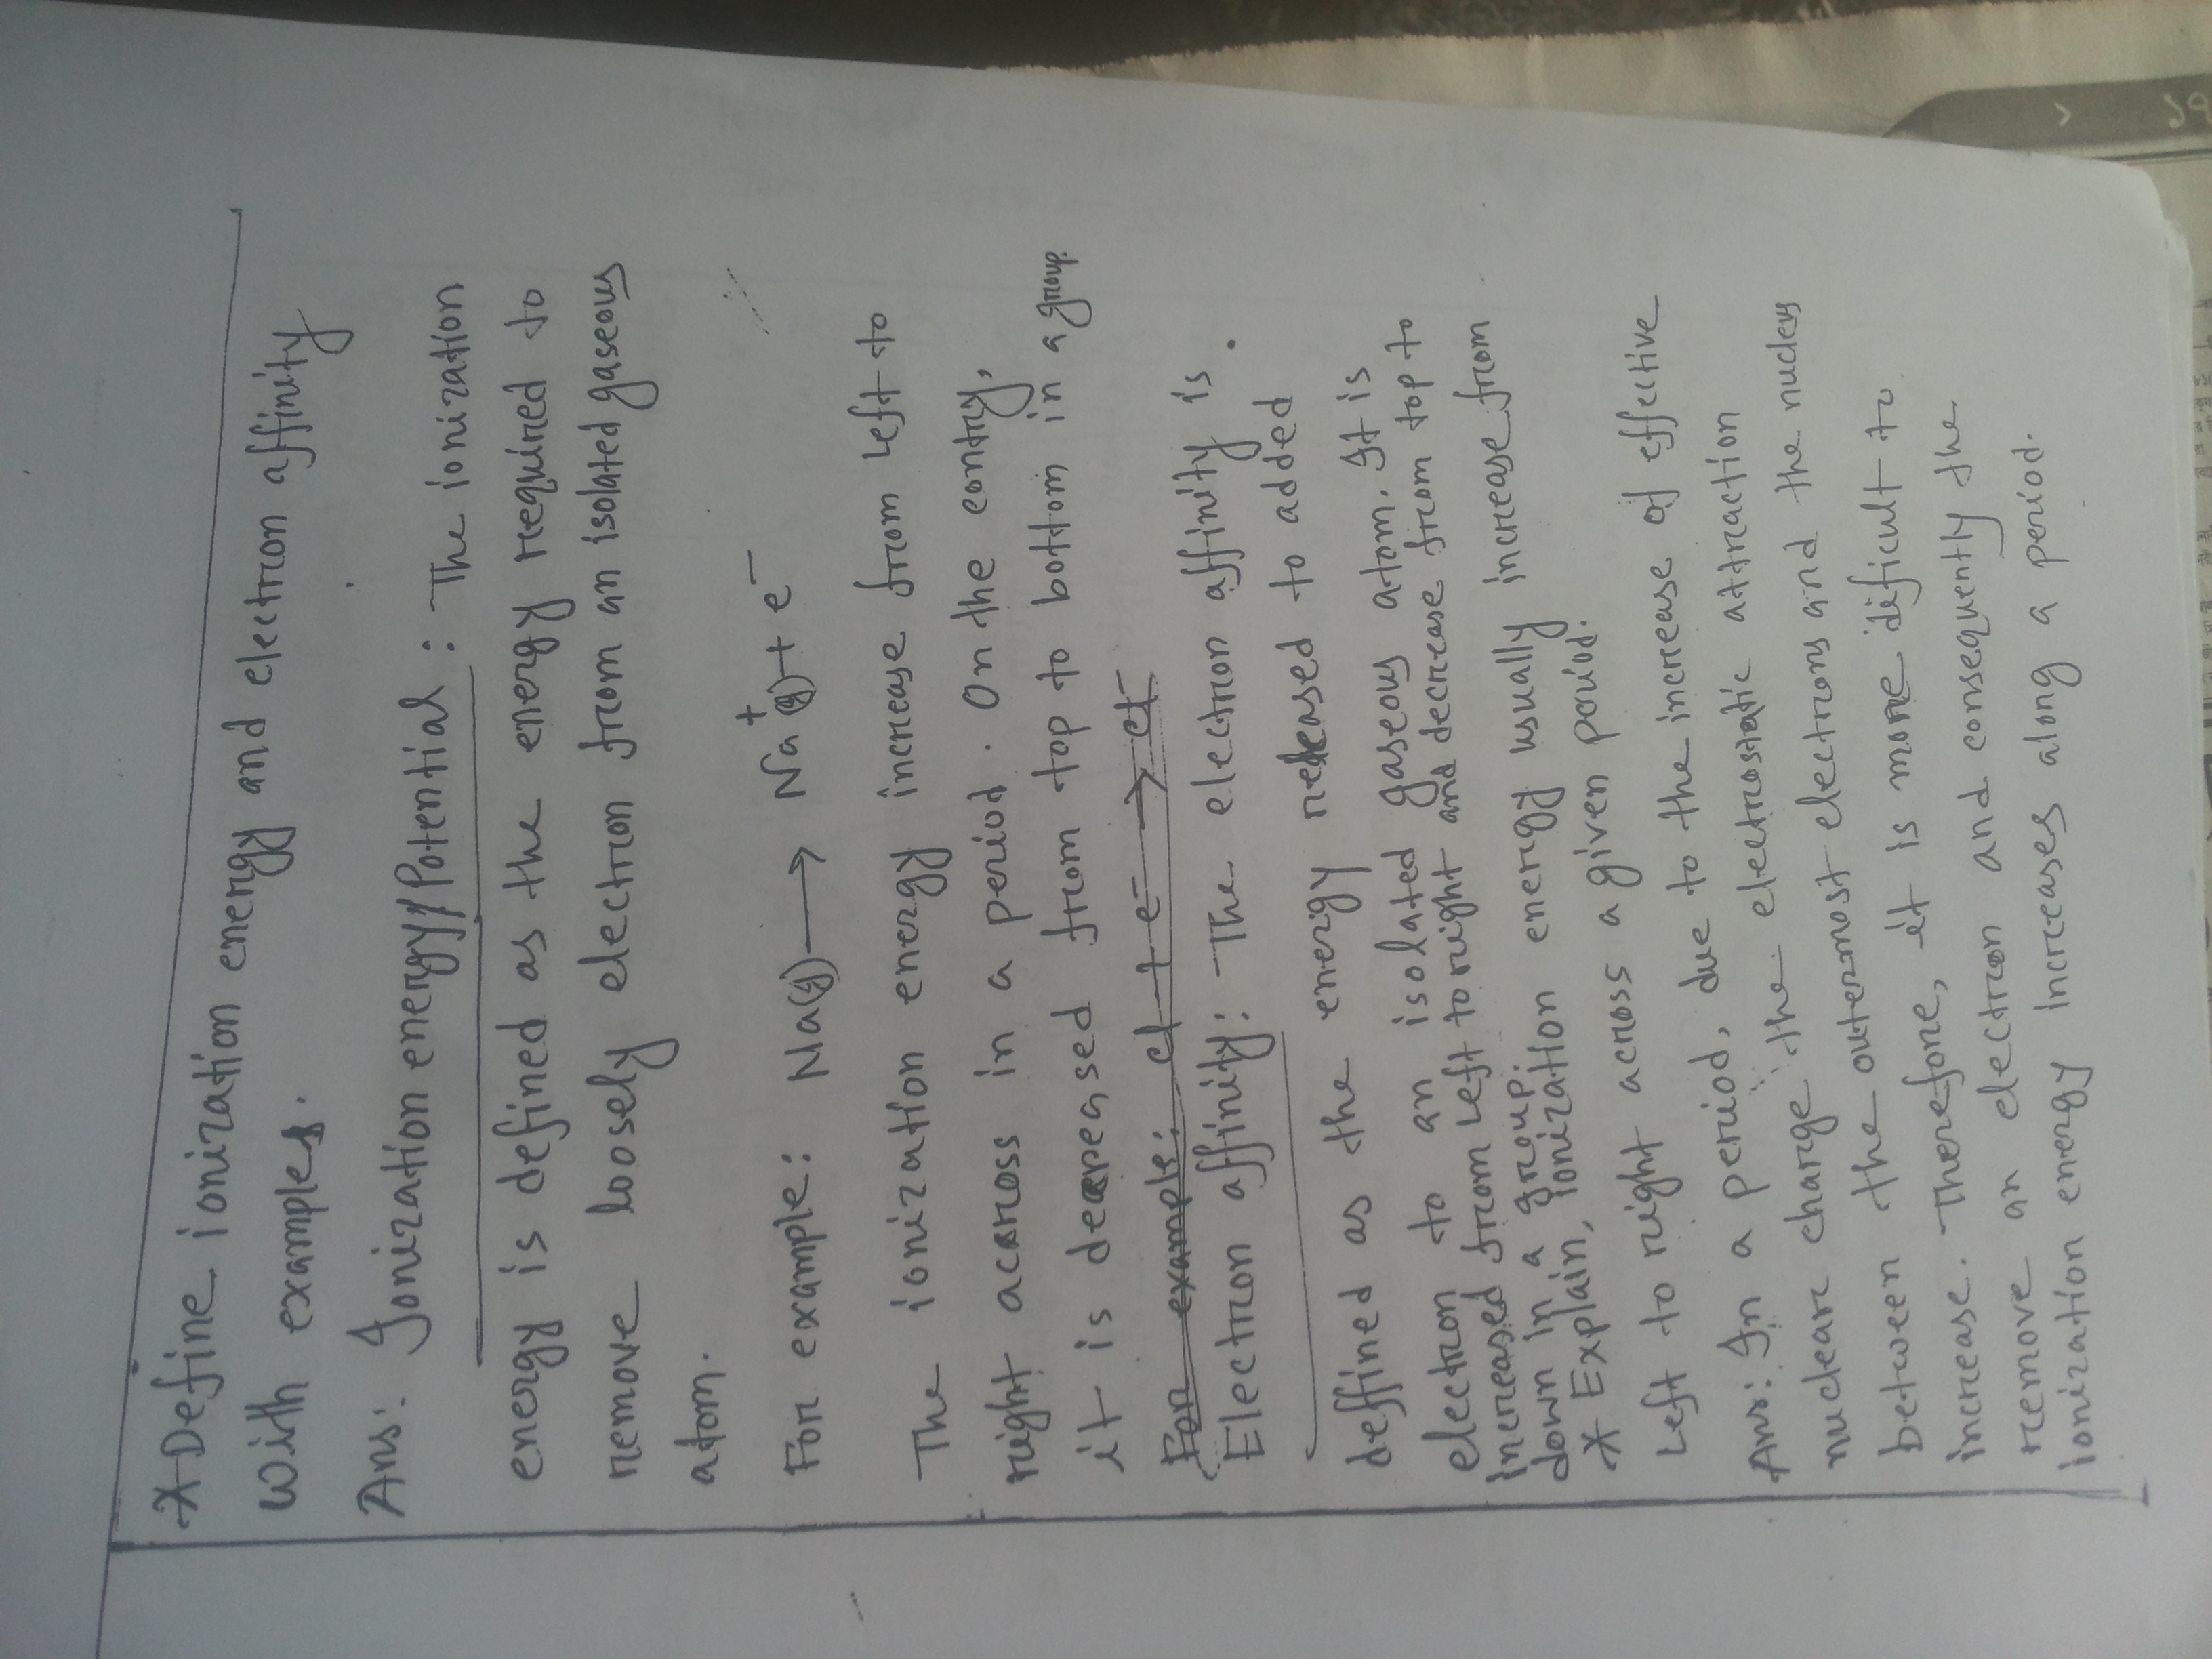 * Define ionization energy and electron affinity
with examples.
Ans: Ionization energy/Potential: The ionization
energy is defined as the energy required to
remove loosely electron from an isolated gaseous
atom.
For example: Na(g) → Na⁺(g) + e⁻
The ionization energy increase from left to
right across in a period. On the contry,
it is decreased from top to bottom in a group.
For example: cl + e⁻ → cl⁻
Electron affinity: The electron affinity is
deffined as the energy released to added
electron to an isolated gaseous atom. It is
increased from left to right and decrease from top to
down in a group.
* Explain, ionization energy usually increase from
left to right across a given period.
Ans: In a period, due to the increase of effective
nuclear charge the electrostatic attraction
between the outermost electrons and the nucleus
increase. Therefore, it is more dificult to
remove an electron and consequently the
ionization energy increases along a period.